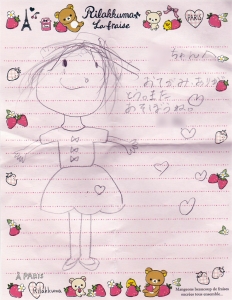 Rilakkuma
La fraise
PARIS
おてがみ ありが
とう。また
あそぼうね。
À PARIS
Rilakkuma
Mangeons beaucoup de fraises
sucrées tous ensemble...